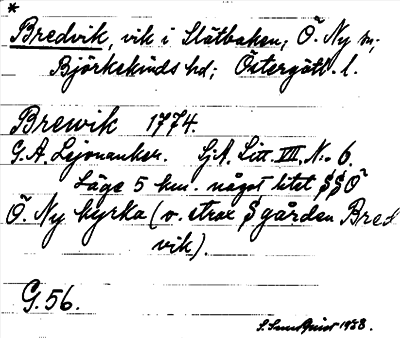 *
Bredvik, vik i Slätbaken, Ö. Ny sn;
Björkekinds hd; Östergötl. l.
Brewik 1774.
G. A. Lejonanker. GA. Litt. VII, No 6.
Läge 5 km. något litet SSÖ
Ö. Ny kyrka (v. strax S gården Bred
vik).
G. 56.
S. Sundquist 1933.